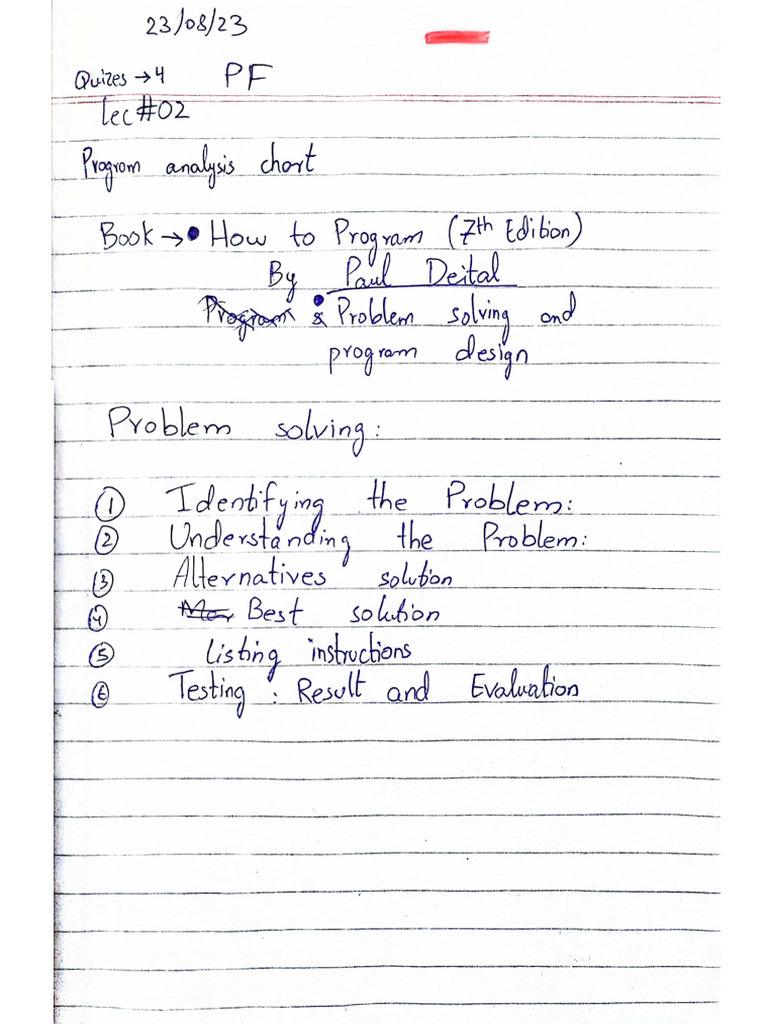 23/08/23
Quizes → 4 PF
Lec#02
Program analysis chart
Book → • How to Program (7th Edition)
By Paul Deital
• & Problem solving and
program design
Problem solving:
① Identifying the Problem:
② Understanding the Problem:
③ Alternatives solution
④ Best solution
⑤ Listing instructions
⑥ Testing : Result and Evaluation